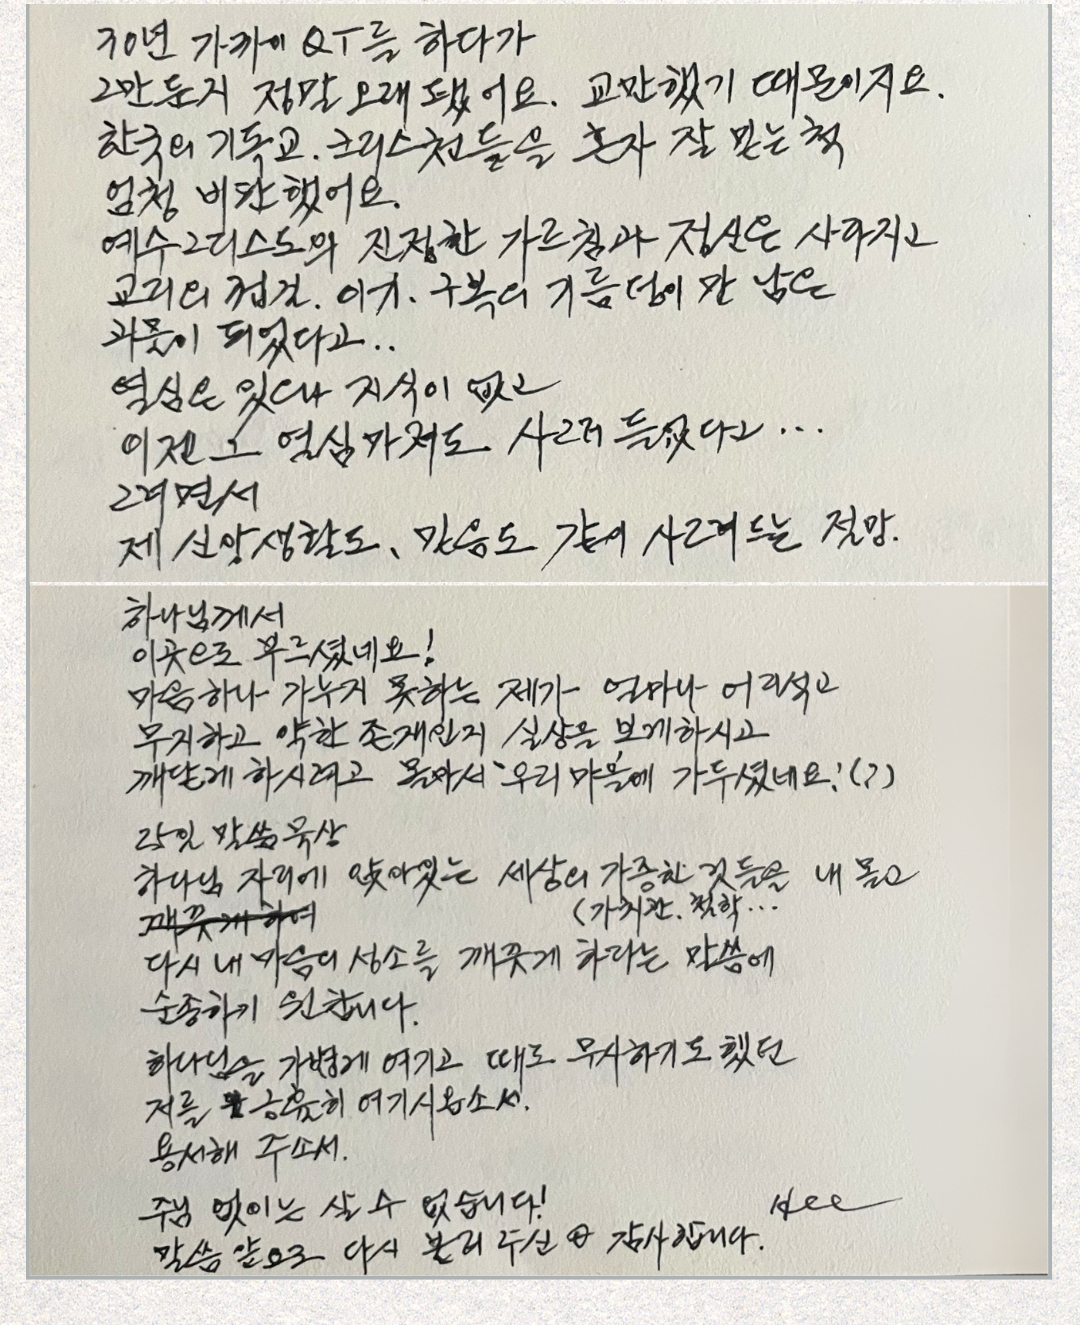 30년 가까이 QT를 하다가
그만둔지 정말 오래 됐어요. 교만했기 때문이지요.
한국의 기독교. 크리스천들을 혼자 잘 믿는척
엄청 비판했어요.
예수그리스도의 진정한 가르침과 정신은 사라지고
교리의 껍질. 이기. 구복의 기름덩이만 남은
괴물이 되었다고..
열심은 있으나 지식이 없고
이젠 그 열심마저도 사그러 들었다고...
그러면서
제 신앙생활도, 믿음도 같이 사그러드는 절망.
하나님께서
이곳으로 부르셨네요!
마음하나 가누지 못하는 제가 얼마나 어리석고
무지하고 약한 존재인지 실상을 보게하시고
깨닫게 하시려고 몰아서 우리 마을에 가두셨네요!(?)
25일 말씀묵상
하나님 자리에 앉아있는 세상의 가증한 것들을 내몰고
(가치관. 철학...
다시 내 마음의 성소를 깨끗게 하라는 말씀에
순종하기 원합니다.
하나님을 가볍게 여기고 때로 무시하기도 했던
저를 긍휼히 여기시옵소서.
용서해 주소서.
주님 없이는 살 수 없습니다! Hee
말씀 앞으로 다시 불러 주신 감사합니다.